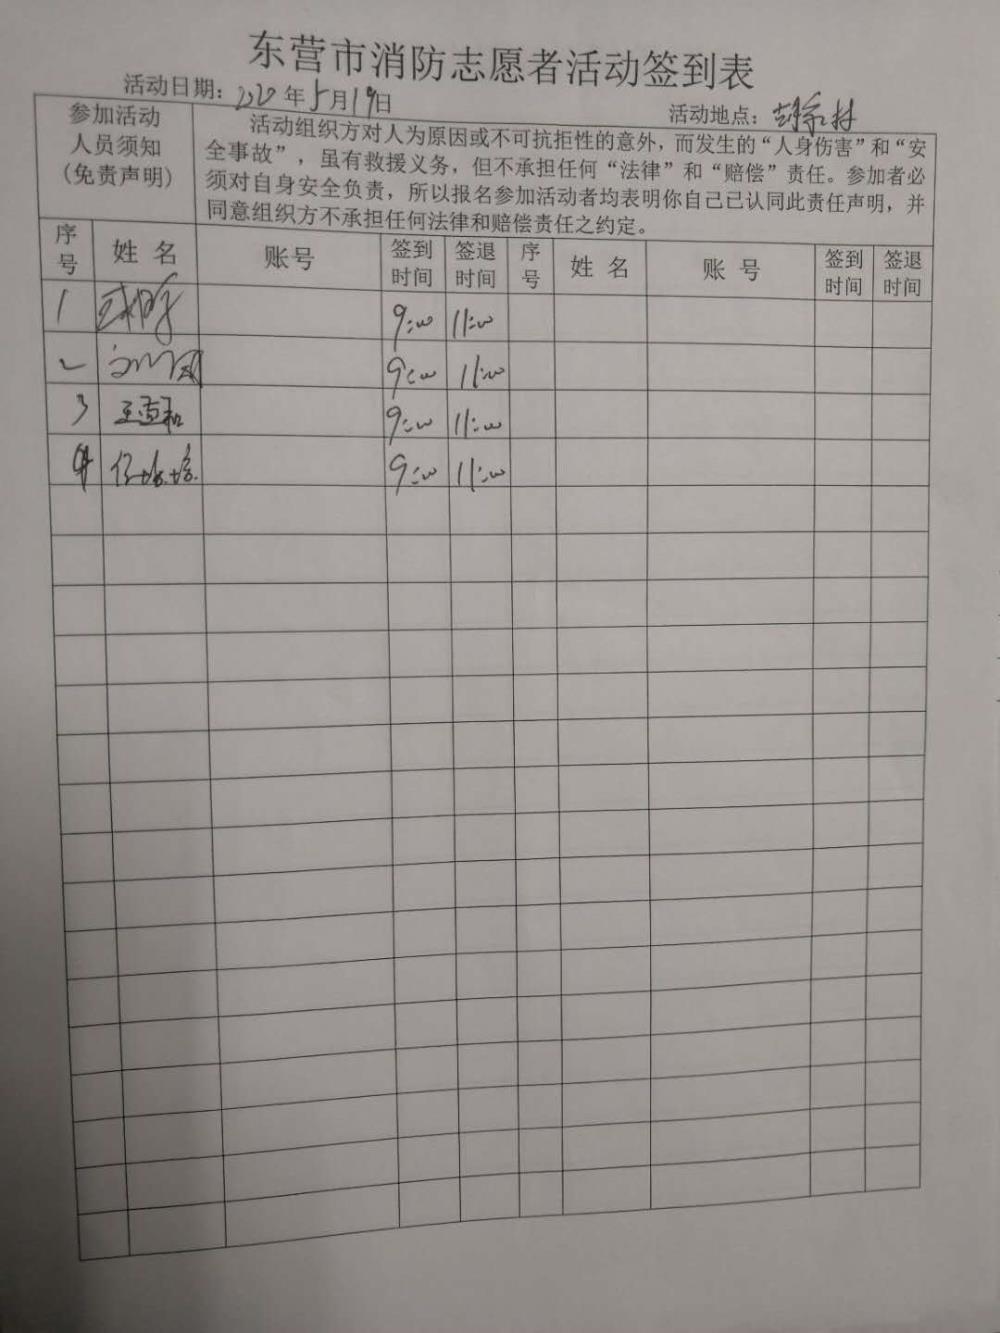 东营市消防志愿者活动签到表
活动日期：2020年5月19日 活动地点：
参加活动
人员须知
(免责声明)
活动组织方对人为原因或不可抗拒性的意外，而发生的“人身伤害”和“安
全事故”，虽有救援义务，但不承担任何“法律”和“赔偿”责任。参加者必
须对自身安全负责，所以报名参加活动者均表明你自己已认同此责任声明，并
同意组织方不承担任何法律和赔偿责任之约定。
序号 姓 名 账号 签到时间 签退时间 序号 姓 名 账 号 签到时间 签退时间
1 9:00 11:00
2 9:00 11:00
3 9:00 11:00
4 9:00 11:00